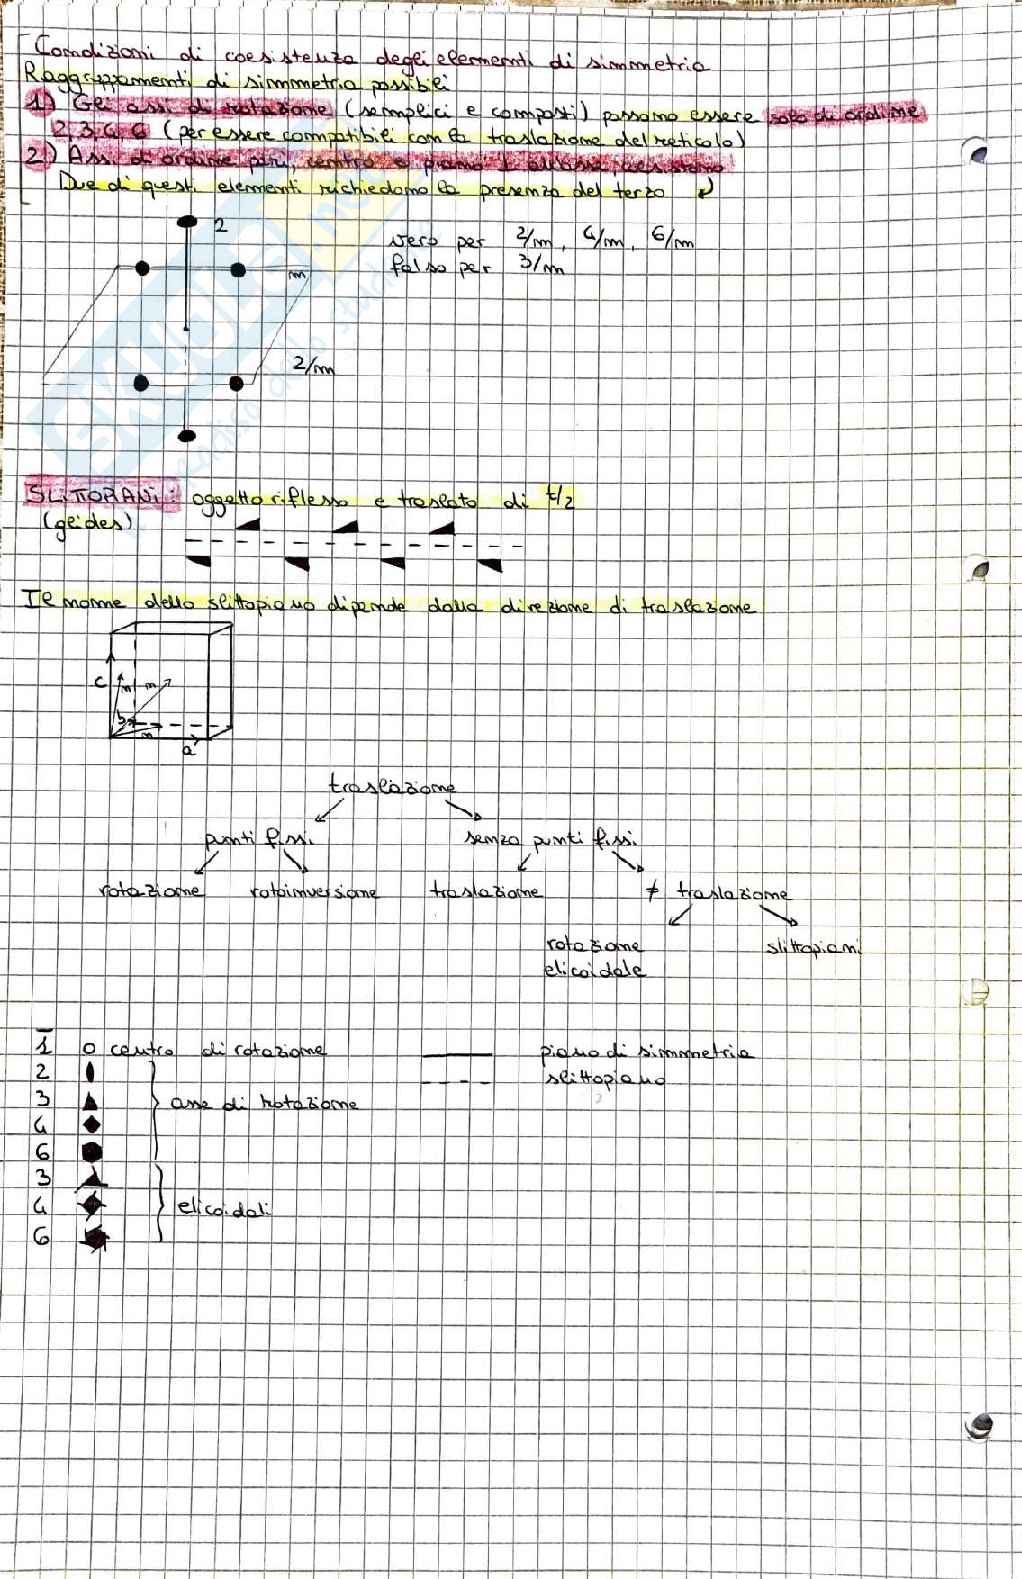 Condizioni di coesistenza degli elementi di simmetria
Raggruppamenti di simmetria possibili
1) Gli assi di rotazione (semplici e composti) possono essere solo di ordine
2, 3, 4, 6 (per essere compatibili con la traslazione del reticolo)
2) Assi di ordine pari, centro e piano ⊥ all'asse coesistono
Due di questi elementi richiedono la presenza del terzo
2
vero per 2/m, 4/m, 6/m
falso per 3/m
m
2/m
SLITTOPIANI: oggetto riflesso e traslato di t/2
(glides)
Il nome dello slittopiano dipende dalla direzione di traslazione
c n n
b
n
a
traslazione
punti fissi senza punti fissi
rotazione rotoinversione traslazione ≠ traslazione
rotazione slittopiani
elicoidale
1̅ o centro di rotazione piano di simmetria
2 slittopiano
3 asse di rotazione
4
6
3
4 elicoidali
6